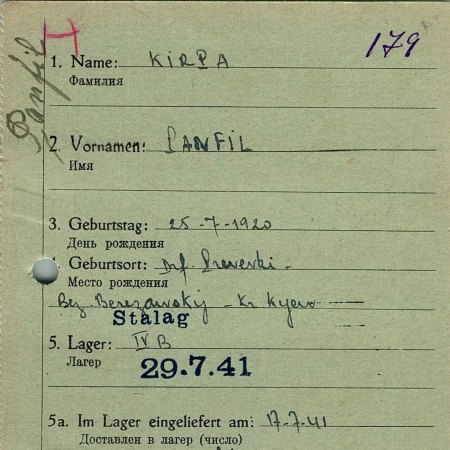 H 179
Panfil
1. Name: KIRPA
Фамилия
2. Vornamen: PANFIL
Имя
3. Geburtstag: 25-7-1920
День рождения
Geburtsort: Drf.
Место рождения
Bez Berezawskij - Kr Kyew
Stalag
5. Lager: IV B
Лагер
29.7.41
5a. Im Lager eingeliefert am: 17-7-41
Доставлен в лагер (число)